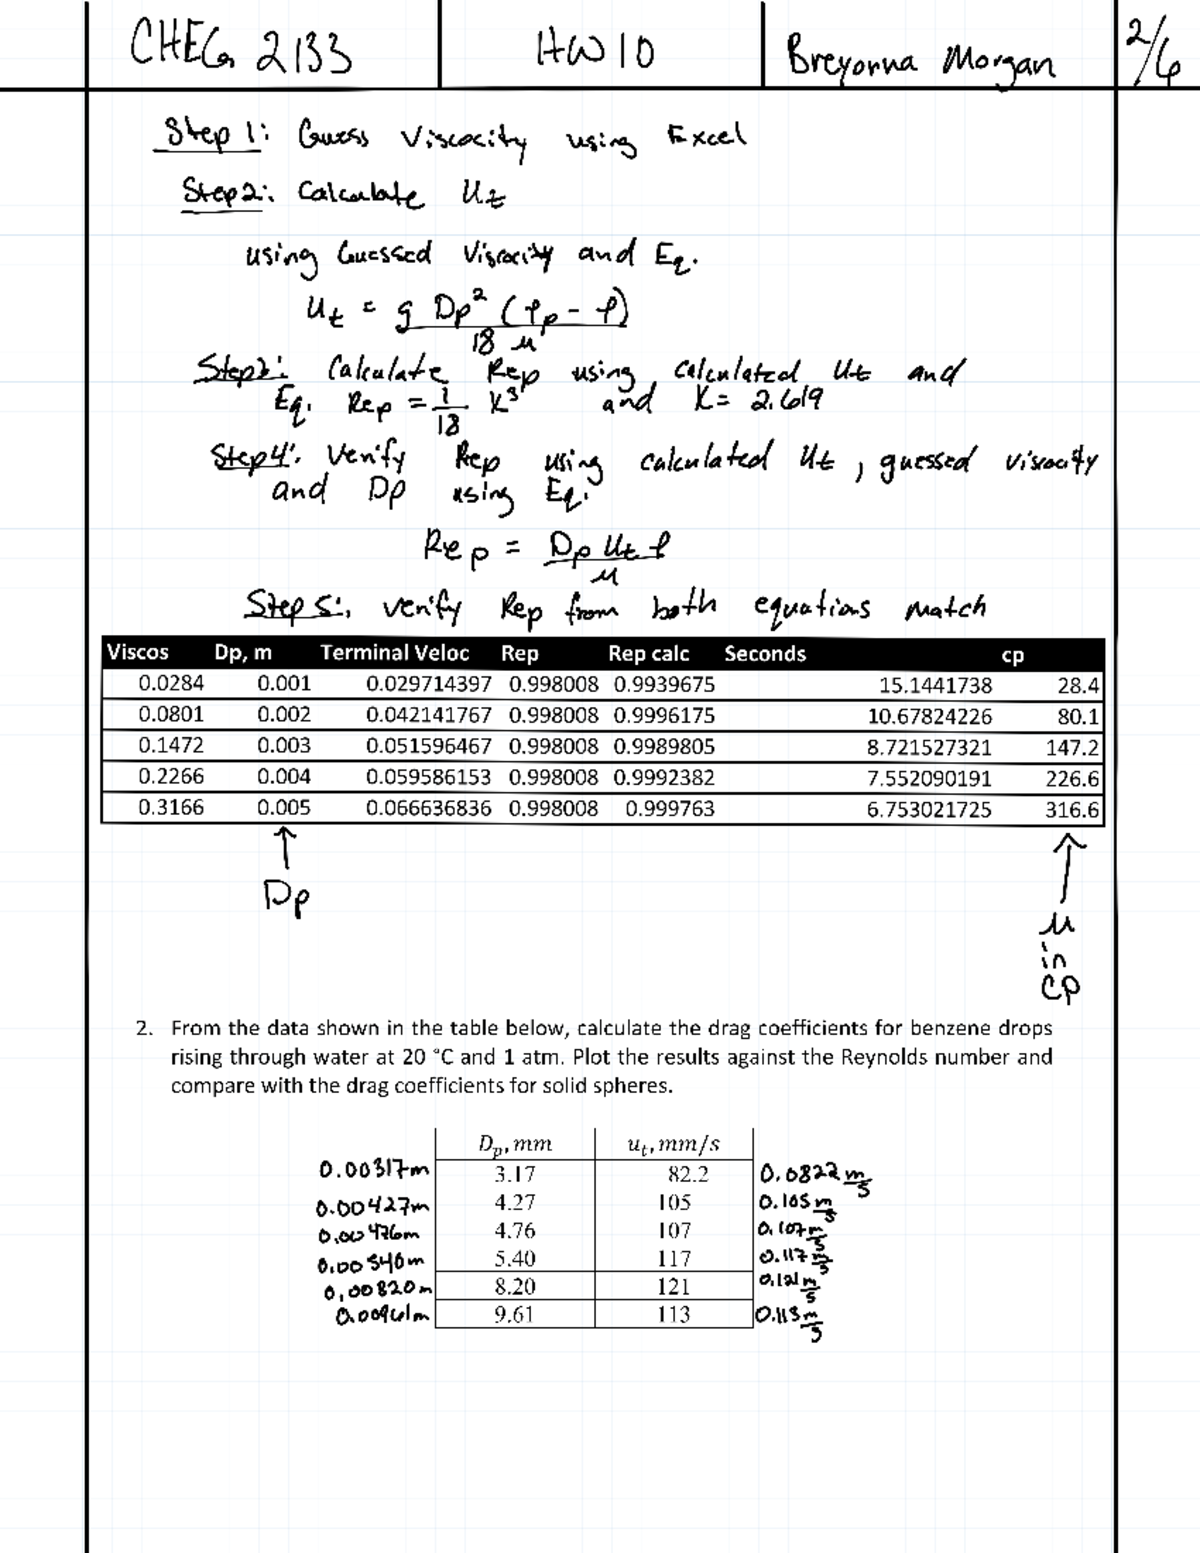 CHEG 2133 HW10 Breyonna Morgan 2/6
Step 1: Guess Viscocity using Excel
Step 2: Calculate Ut
using Guessed Viscocity and Eq.
Ut = g Dp² (ρp - ρ)
18 μ
Step 3: Calculate Rep using calculated Ut and
Eq. Rep = 1/18 K³ and K = 2.619
Step 4: Verify Rep using calculated Ut, guessed viscocity
and Dp using Eq.
Rep = Dp Ut ρ
μ
Step 5: verify Rep from both equations match
Viscos Dp, m Terminal Veloc Rep Rep calc Seconds cp
0.0284 0.001 0.029714397 0.998008 0.9939675 15.1441738 28.4
0.0801 0.002 0.042141767 0.998008 0.9996175 10.67824226 80.1
0.1472 0.003 0.051596467 0.998008 0.9989805 8.721527321 147.2
0.2266 0.004 0.059586153 0.998008 0.9992382 7.552090191 226.6
0.3166 0.005 0.066636836 0.998008 0.999763 6.753021725 316.6
↑ ↑
Dp μ
in
CP
2. From the data shown in the table below, calculate the drag coefficients for benzene drops
rising through water at 20 °C and 1 atm. Plot the results against the Reynolds number and
compare with the drag coefficients for solid spheres.
Dp, mm ut, mm/s
0.00317m 3.17 82.2 0.0822 m/s
0.00427m 4.27 105 0.105 m/s
0.00476m 4.76 107 0.107 m/s
0.00540m 5.40 117 0.117 m/s
0.00820m 8.20 121 0.121 m/s
0.00961m 9.61 113 0.113 m/s